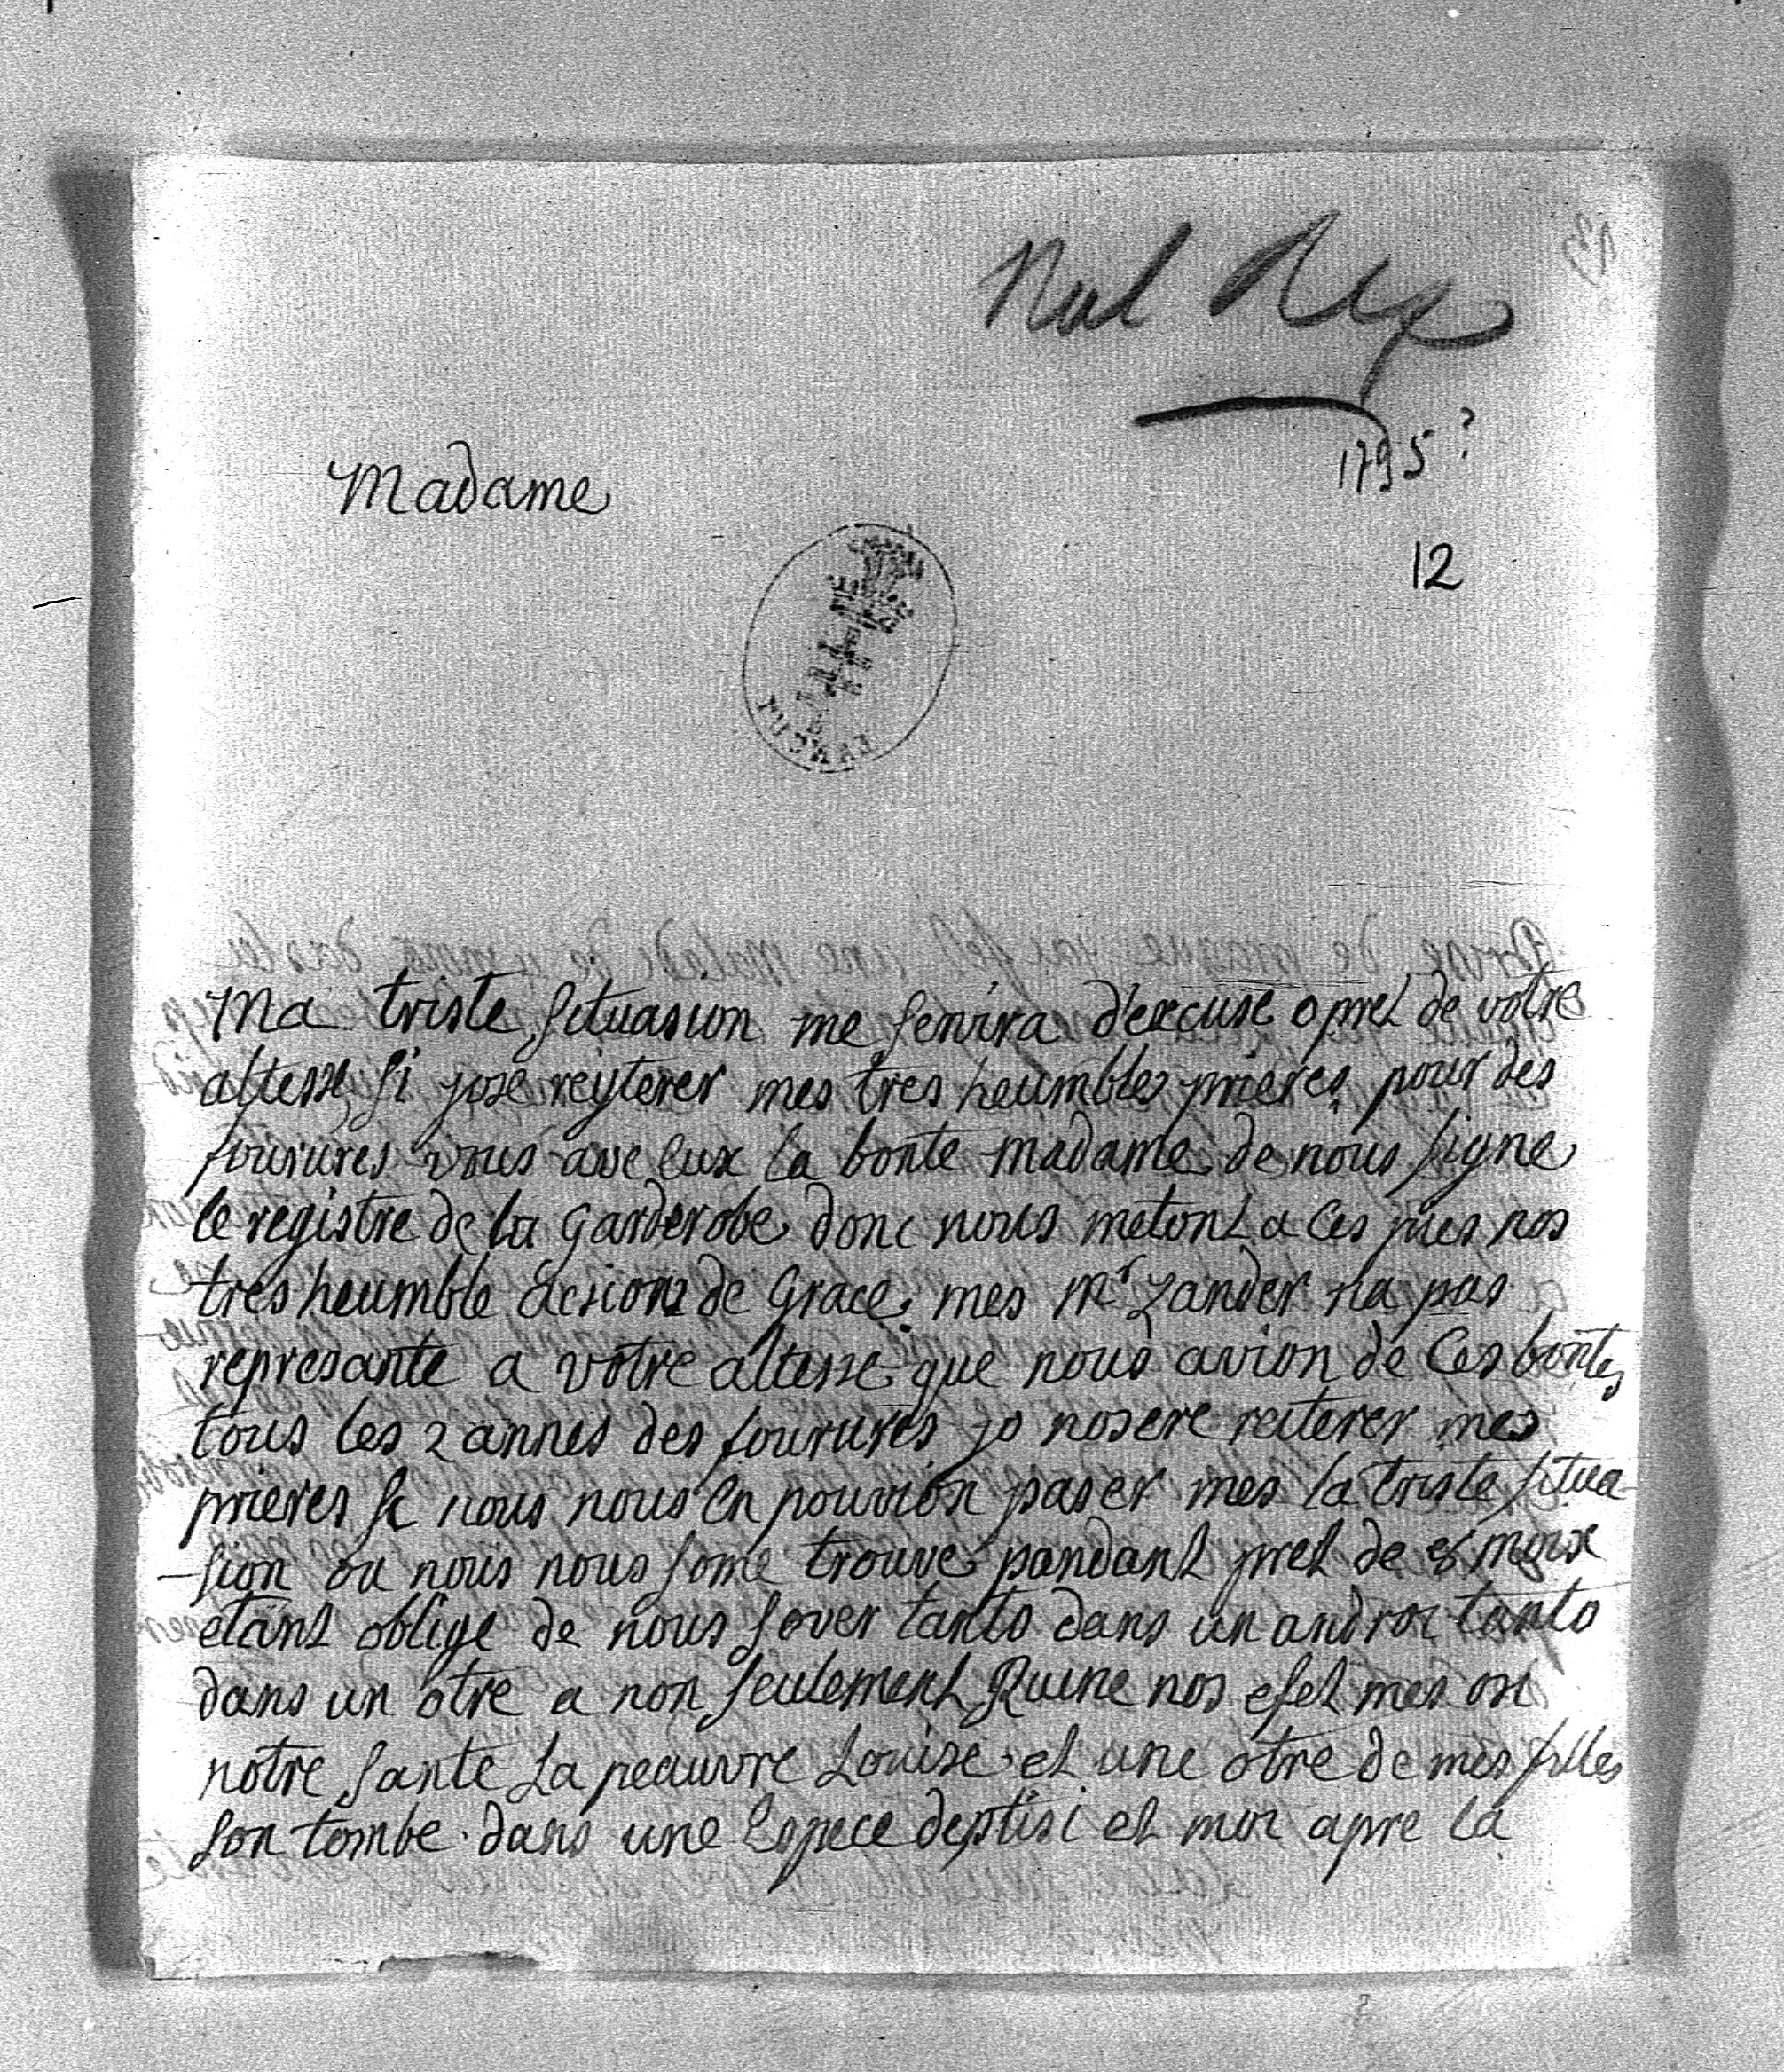 1795?
Madame
12
Ma triste situasion me servira d'excuse opret de votre
altesse si jose reyterer mes tres heumbles prieres pour des
fourures vous ave eux la bonte madame de nous signe
le registre de la Garderobe donc nous metont a Ces pies nos
tres heumble acsions de Grace. mes Mr Zander na pas
represante a votre altesse que nous avion de Ces bontes
tous les 2 annes des fourures jo nosere reiterer mes
prieres si nous nous en pouvion paser mes la triste situa-
-sion ou nous nous some trouve pandant pret de 8 moix
etant oblige de nous sover tanto dans un androi tanto
dans un otre a non seulement Ruine nos efet mes osi
notre sante La peauvre Louise et une otre de mes filles
son tombe dans une Espece deptisi et moi apre la